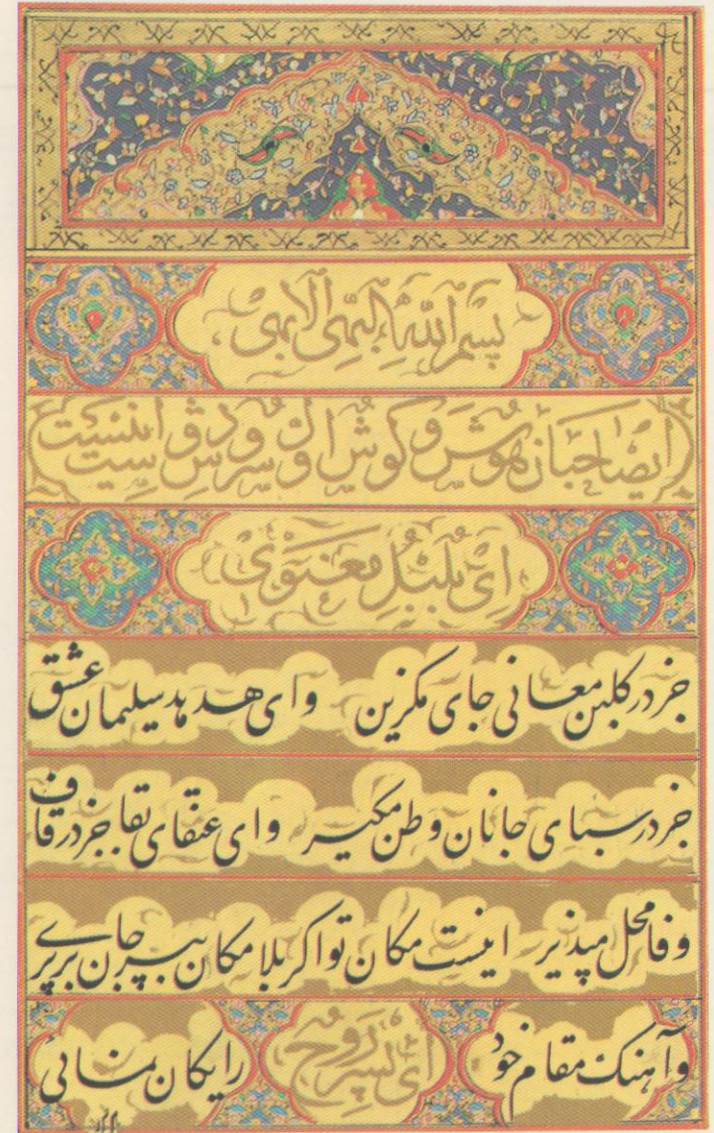 بِسْمِ اللّهِ الْبَهِیِّ الْاَبْهی
ایصاحبان هوش و کوش اوّل سرود دوست اینست
ای بلبل معنوی
جز در کلبن معانی جای مکزین و ای هدهد سلیمان عشق
جز در سبای جانان وطن مکیر و ای عنقای بقا جز در قاف
وفا محل مپذیر اینست مکان تو اکر بلامکان بپر جان برپری
و آهنک مقام خود ای پسر روح رایکان نمائی